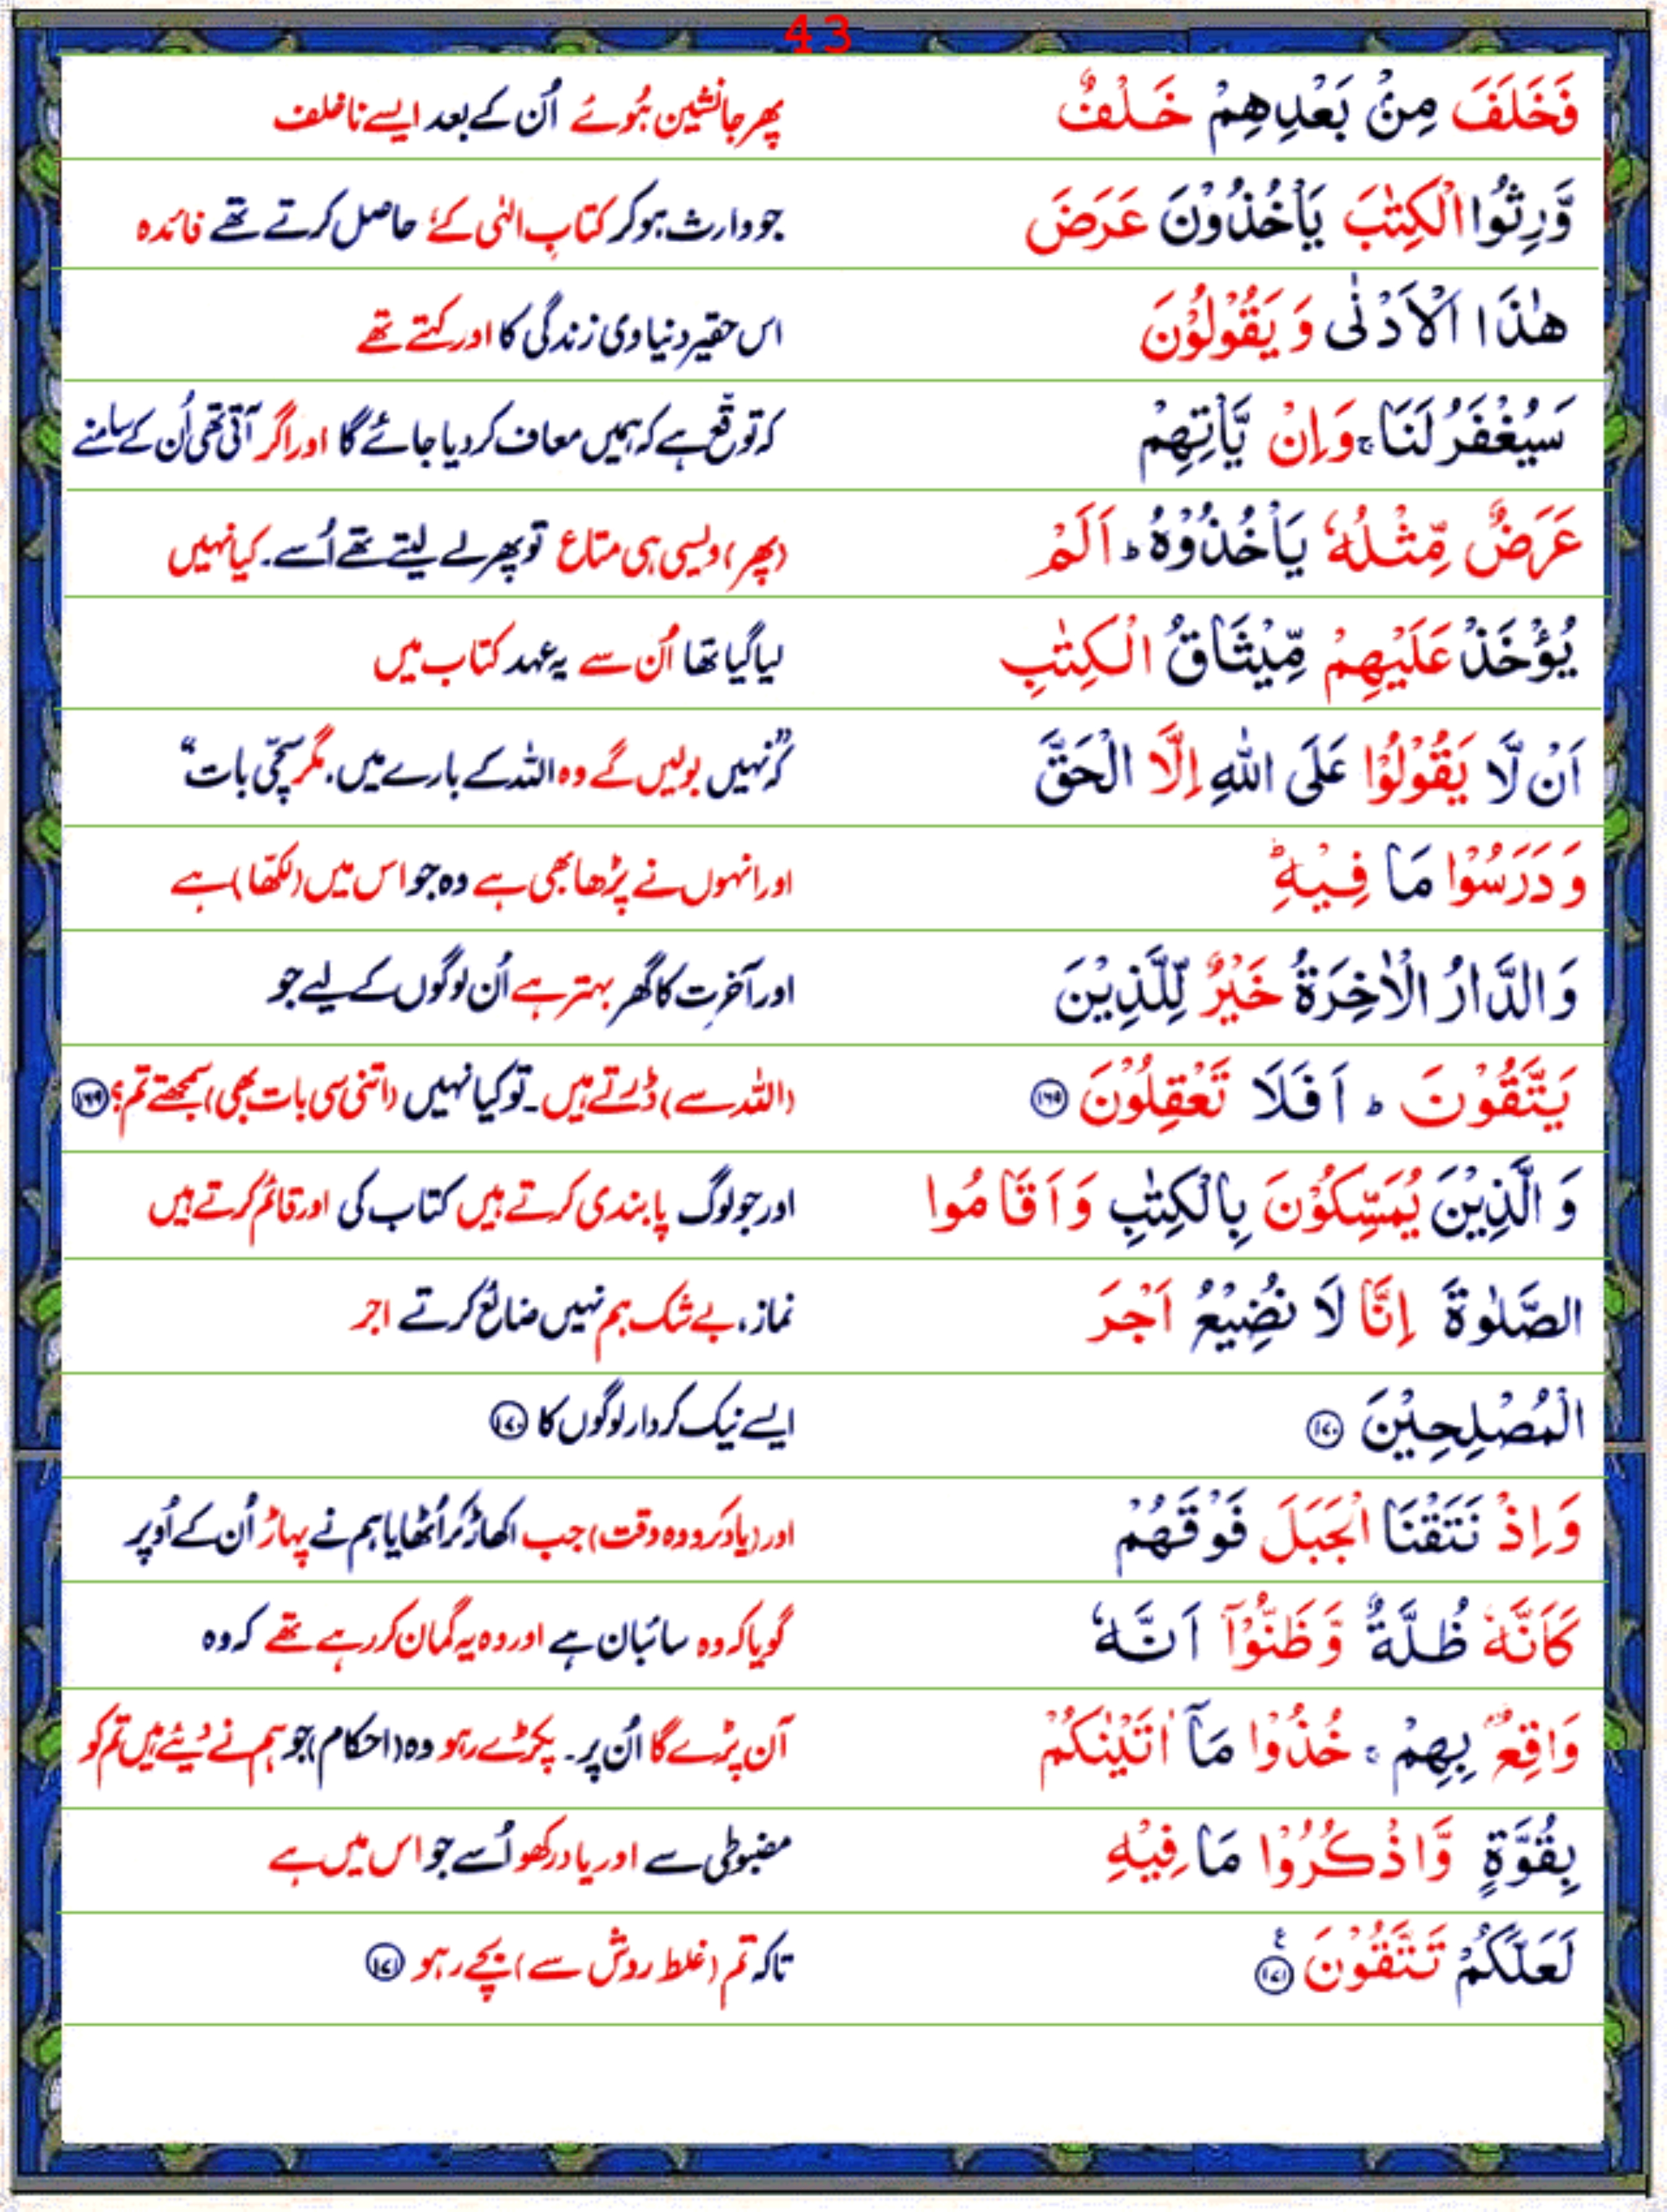 43
فَخَلَفَ مِنْۢ بَعْدِهِمْ خَلْفٌ
پھر جانشین ہُوئے اُن کے بعد ایسے ناخلف
وَّرِثُوا الْكِتٰبَ يَاْخُذُوْنَ عَرَضَ
جو وارث ہو کر کتابِ الٰہی کے حاصل کرتے تھے فائدہ
هٰذَا الْاَدْنٰى وَ يَقُوْلُوْنَ
اس حقیر دنیاوی زندگی کا اور کہتے تھے
سَيُغْفَرُ لَنَا ۚ وَاِنْ يَّاْتِهِمْ
کہ توقّع ہے کہ ہمیں معاف کر دیا جائے گا اور اگر آتی تھی اُن کے سامنے
عَرَضٌ مِّثْلُهٗ يَاْخُذُوْهُ ؕ اَلَمْ
(پھر) ویسی ہی متاع تو پھر لے لیتے تھے اُسے۔ کیا نہیں
يُؤْخَذْ عَلَيْهِمْ مِّيْثَاقُ الْكِتٰبِ
لیا گیا تھا اُن سے یہ عہد کتاب میں
اَنْ لَّا يَقُوْلُوْا عَلَى اللّٰهِ اِلَّا الْحَقَّ
کہ ”نہیں بولیں گے وہ اللہ کے بارے میں، مگر سچّی بات“
وَ دَرَسُوْا مَا فِيْهِ ؕ
اور انہوں نے پڑھا بھی ہے وہ جو اس میں (لکھّا) ہے
وَ الدَّارُ الْاٰخِرَةُ خَيْرٌ لِّلَّذِيْنَ
اور آخرت کا گھر بہتر ہے اُن لوگوں کے لیے جو
يَتَّقُوْنَ ؕ اَفَلَا تَعْقِلُوْنَ ۱۶۹
(اللہ سے) ڈرتے ہیں۔ تو کیا نہیں (اتنی سی بات بھی) سمجھتے تم؟ ۱۶۹
وَ الَّذِيْنَ يُمَسِّكُوْنَ بِالْكِتٰبِ وَ اَقَامُوا
اور جو لوگ پابندی کرتے ہیں کتاب کی اور قائم کرتے ہیں
الصَّلٰوةَ اِنَّا لَا نُضِيْعُ اَجْرَ
نماز، بے شک ہم نہیں ضائع کرتے اجر
الْمُصْلِحِيْنَ ۱۷۰
ایسے نیک کردار لوگوں کا ۱۷۰
وَاِذْ نَتَقْنَا الْجَبَلَ فَوْقَهُمْ
اور (یاد کرو وہ وقت) جب اکھاڑ کر اُٹھایا ہم نے پہاڑ اُن کے اُوپر
كَاَنَّهٗ ظُلَّةٌ وَّظَنُّوْۤا اَنَّهٗ
گویا کہ وہ سائبان ہے اور وہ یہ گمان کر رہے تھے کہ وہ
وَاقِعٌۢ بِهِمْ ۚ خُذُوْا مَاۤ اٰتَيْنٰكُمْ
آن پڑے گا اُن پر۔ پکڑے رہو وہ (احکام) جو ہم نے دیئے ہیں تم کو
بِقُوَّةٍ وَّاذْكُرُوْا مَا فِيْهِ
مضبوطی سے اور یاد رکھو اُسے جو اس میں ہے
لَعَلَّكُمْ تَتَّقُوْنَ ۱۷۱ ع
تاکہ تم (غلط روش سے) بچے رہو ۱۷۱